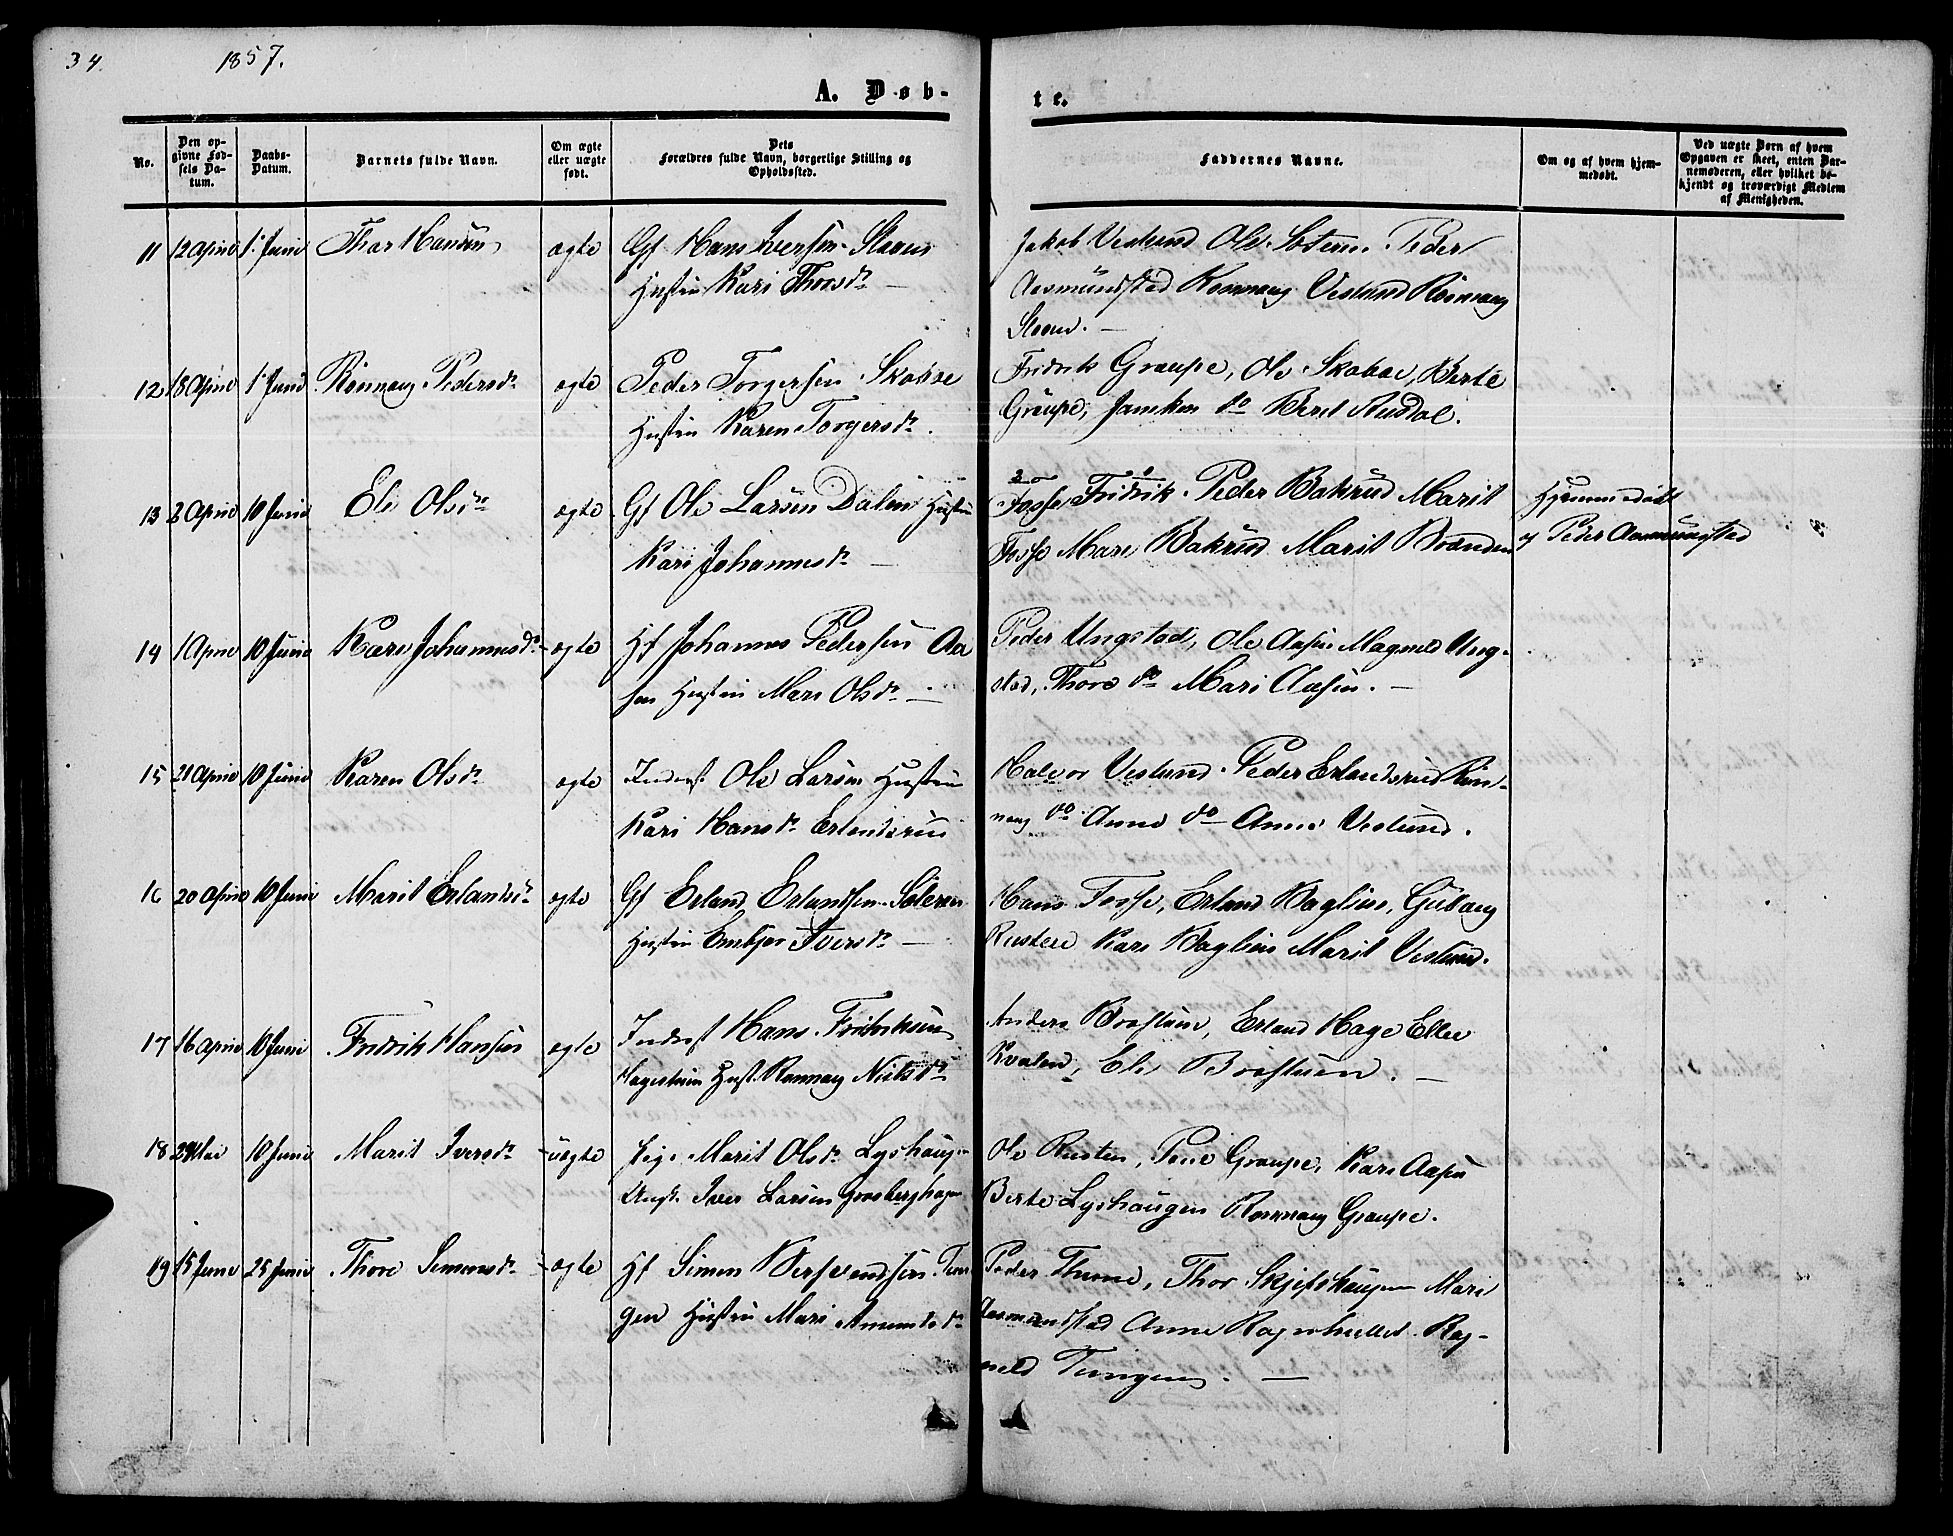 34.
1857.
A. Døb-
te.
No.
Den opgivne Fødsels Datum.
Daabs-Datum.
Barnets fulde Navn.
Om ægte eller uægte født.
Dets Forældres fulde Navn, borgerlige Stilling og Opholdssted.
Faddernes Navne.
Om og af hvem hjemmedøbt.
Ved uægte Børn af hvem Opgaven er skeet, enten Barnemoderen, eller hvilket bekjendt og troværdigt Medlem af Menigheden.
11 12 April 1. Juni Thor Hansen ægte Gf Hans Iversen Steen
Hustru Kari Thorsdr
Jakob Veslund Ole Peder
Aasmundstad Rønnaug Veslund Rønnaug
Steen.
12 18 April 1. Juni Rønnaug Pedersdr ægte Peder Torgersen
Hustru Karen Torgersdr.
Fridrik Graupe, Ole Berte
Graupe, do Beret
13 2 April 10 Juni Eli Olsdr ægte Gf Ole Larsen Dalen Hustru
Kari Johannesdr
Fosse Fridrik Peder Bakrud Marit
Fosse Mari Bakrud Marit
Hjemmedøbt
af Peder Aasmundstad
14 1 April 10 Juni Kari Johannesdr ægte Hf Johannes Pedersen Aa
sen Hustru Mari Olsdr
Peder Ungstad, Ole Aasen Magnild Ung-
stad, Thore do Mari Aasen.
15 21 April 10 Juni Karen Olsdr ægte Inderst Ole Larsen Hustru
Kari Hansdr Erlandsrud
Halvor Veslund Peder Erlandsrud Røn-
naug do Anne do Anne Veslund.
16 20 April 10 Juni Marit Erlandsdr ægte Gf Erland Erlandsen
Hustru Embjør Iversdr
Hans Fosse, Erland Baglien, Gulaug
Rusten Kari Baglien Marit Veslund.
17 16 April 10 Juni Fridrik Hansen ægte Inderst Hans Fridriksen
Hagestuen Hust. Rønnaug Nielsdr
Anders Erland Hage
Kvalen, Eli
18 Mai 10 Juni Marit Iversdr uægte Pige Marit Olsdr Lyshaugen
Ungk. Iver Larsen
Ole Rusten, Graupe, Kari Aasen
Berte Lyshaugen Rønnaug Graupe.
19 15 Juni 25 Juni Thore Simensdr ægte Hf Simen
gen Hustru Mari Amundsdr
Peder Thor Mari
Aasmundstad Anne Rag-
nild